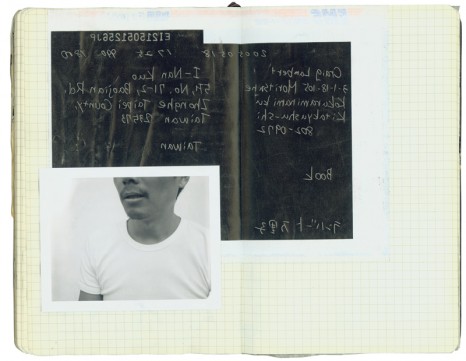 2005 05 18
I-Nan Kuo
No. 71-2, Baojian Rd.
Zhonghe Taipei County
Taiwan 23573
Taiwan
Craig Lambert
3-1-18-105 Moritsune
Kokuraminami ku
Kitakyushu-shi
802-0972
Book
ランバート